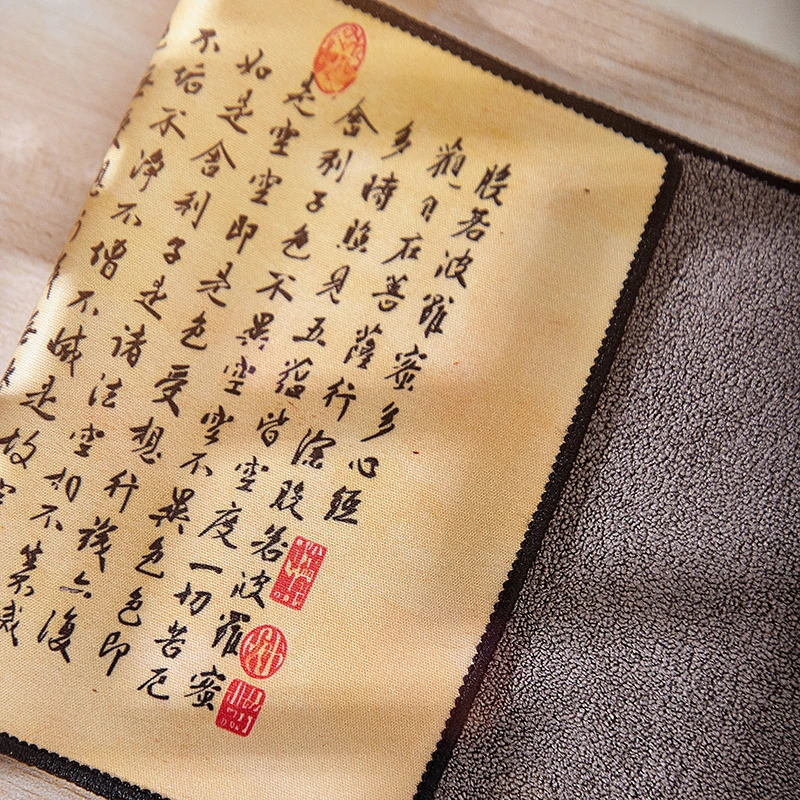 般若波羅蜜多心經
觀自在菩薩行深般若波羅蜜
多時照見五蘊皆空度一切苦厄
舍利子色不異空空不異色色即
是空空即是色受想行識亦復
如是舍利子是諸法空相不
不垢不淨不增不減是故空